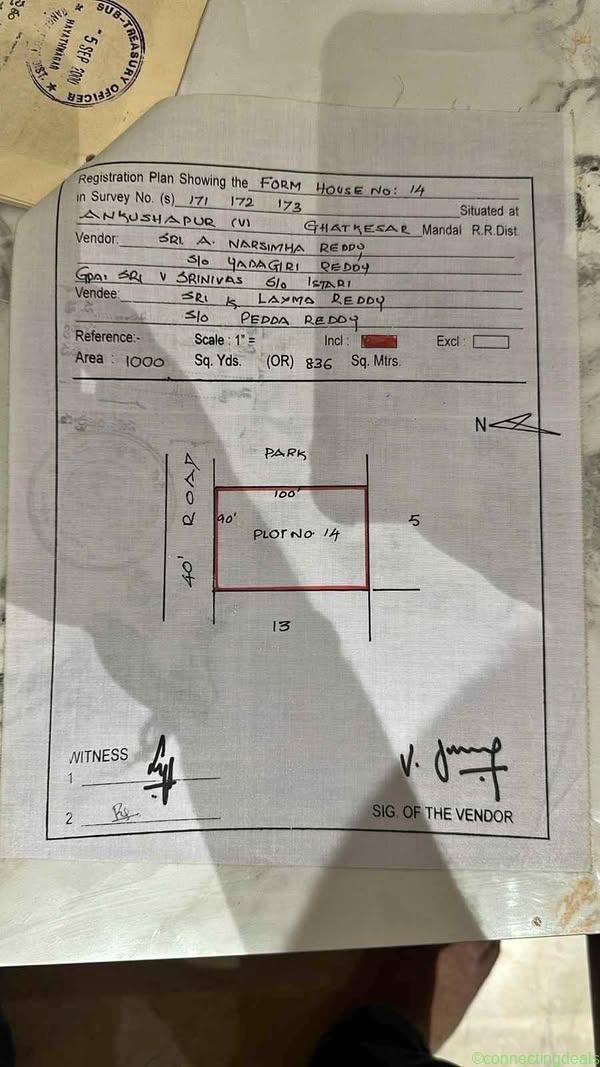 SUB-TREASURY OFFICER
HAYATHNAGAR
-5 SEP 2000
DIST.
Registration Plan Showing the FORM HOUSE NO: 14
in Survey No. (s) 171 172 173 Situated at
ANKUSHAPUR (V) GHATKESAR Mandal R.R.Dist.
Vendor: SRI. A. NARSIMHA REDDY
S/o YADAGIRI REDDY
GPA: SRI V SRINIVAS S/o ISTARI
Vendee: SRI K. LAXMA REDDY
S/o PEDDA REDDY
Reference:- Scale : 1" = Incl : Excl :
Area : 1000 Sq. Yds. (OR) 836 Sq. Mtrs.
N
PARK
40' ROAD
100'
90'
PLOT NO. 14
5
13
WITNESS
1
2
SIG. OF THE VENDOR
©connectingdeals